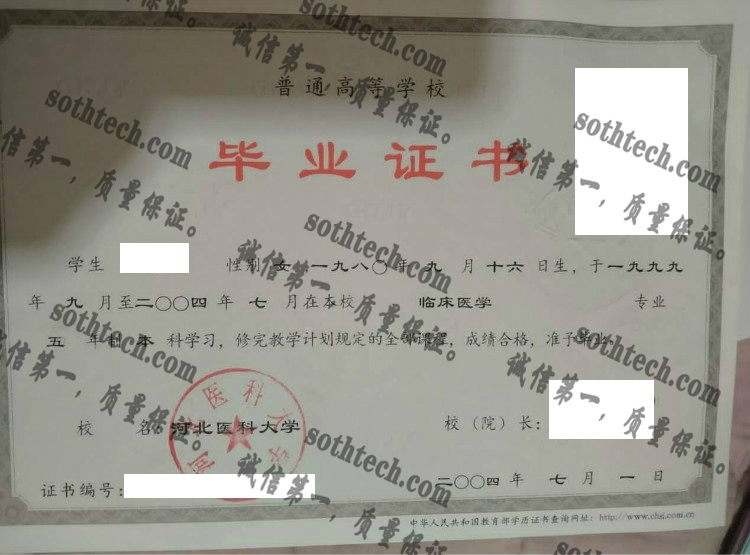 普通高等学校
毕业证书
学生 性别 女，一九八〇年 九 月 十六 日生，于一九九九
年 九 月至二〇〇四 年 七 月在本校 临床医学 专业
五 年制 本 科学习，修完教学计划规定的全部课程，成绩合格，准予毕业。
校 名：河北医科大学 校（院）长：
河北医科大学
二〇〇四年 七 月 一 日
证书编号：
中华人民共和国教育部学历证书查询网址：http://www.chsi.com.cn
sothtech.com
诚信第一，质量保证。
sothtech.com
诚信第一，质量保证。
sothtech.com
诚信第一，质量保证。
sothtech.com
诚信第一，质量保证。
sothtech.com
诚信第一，质量保证。
sothtech.com
诚信第一，质量保证。
sothtech.com
诚信第一，质量保证。
sothtech.com
诚信第一，质量保证。